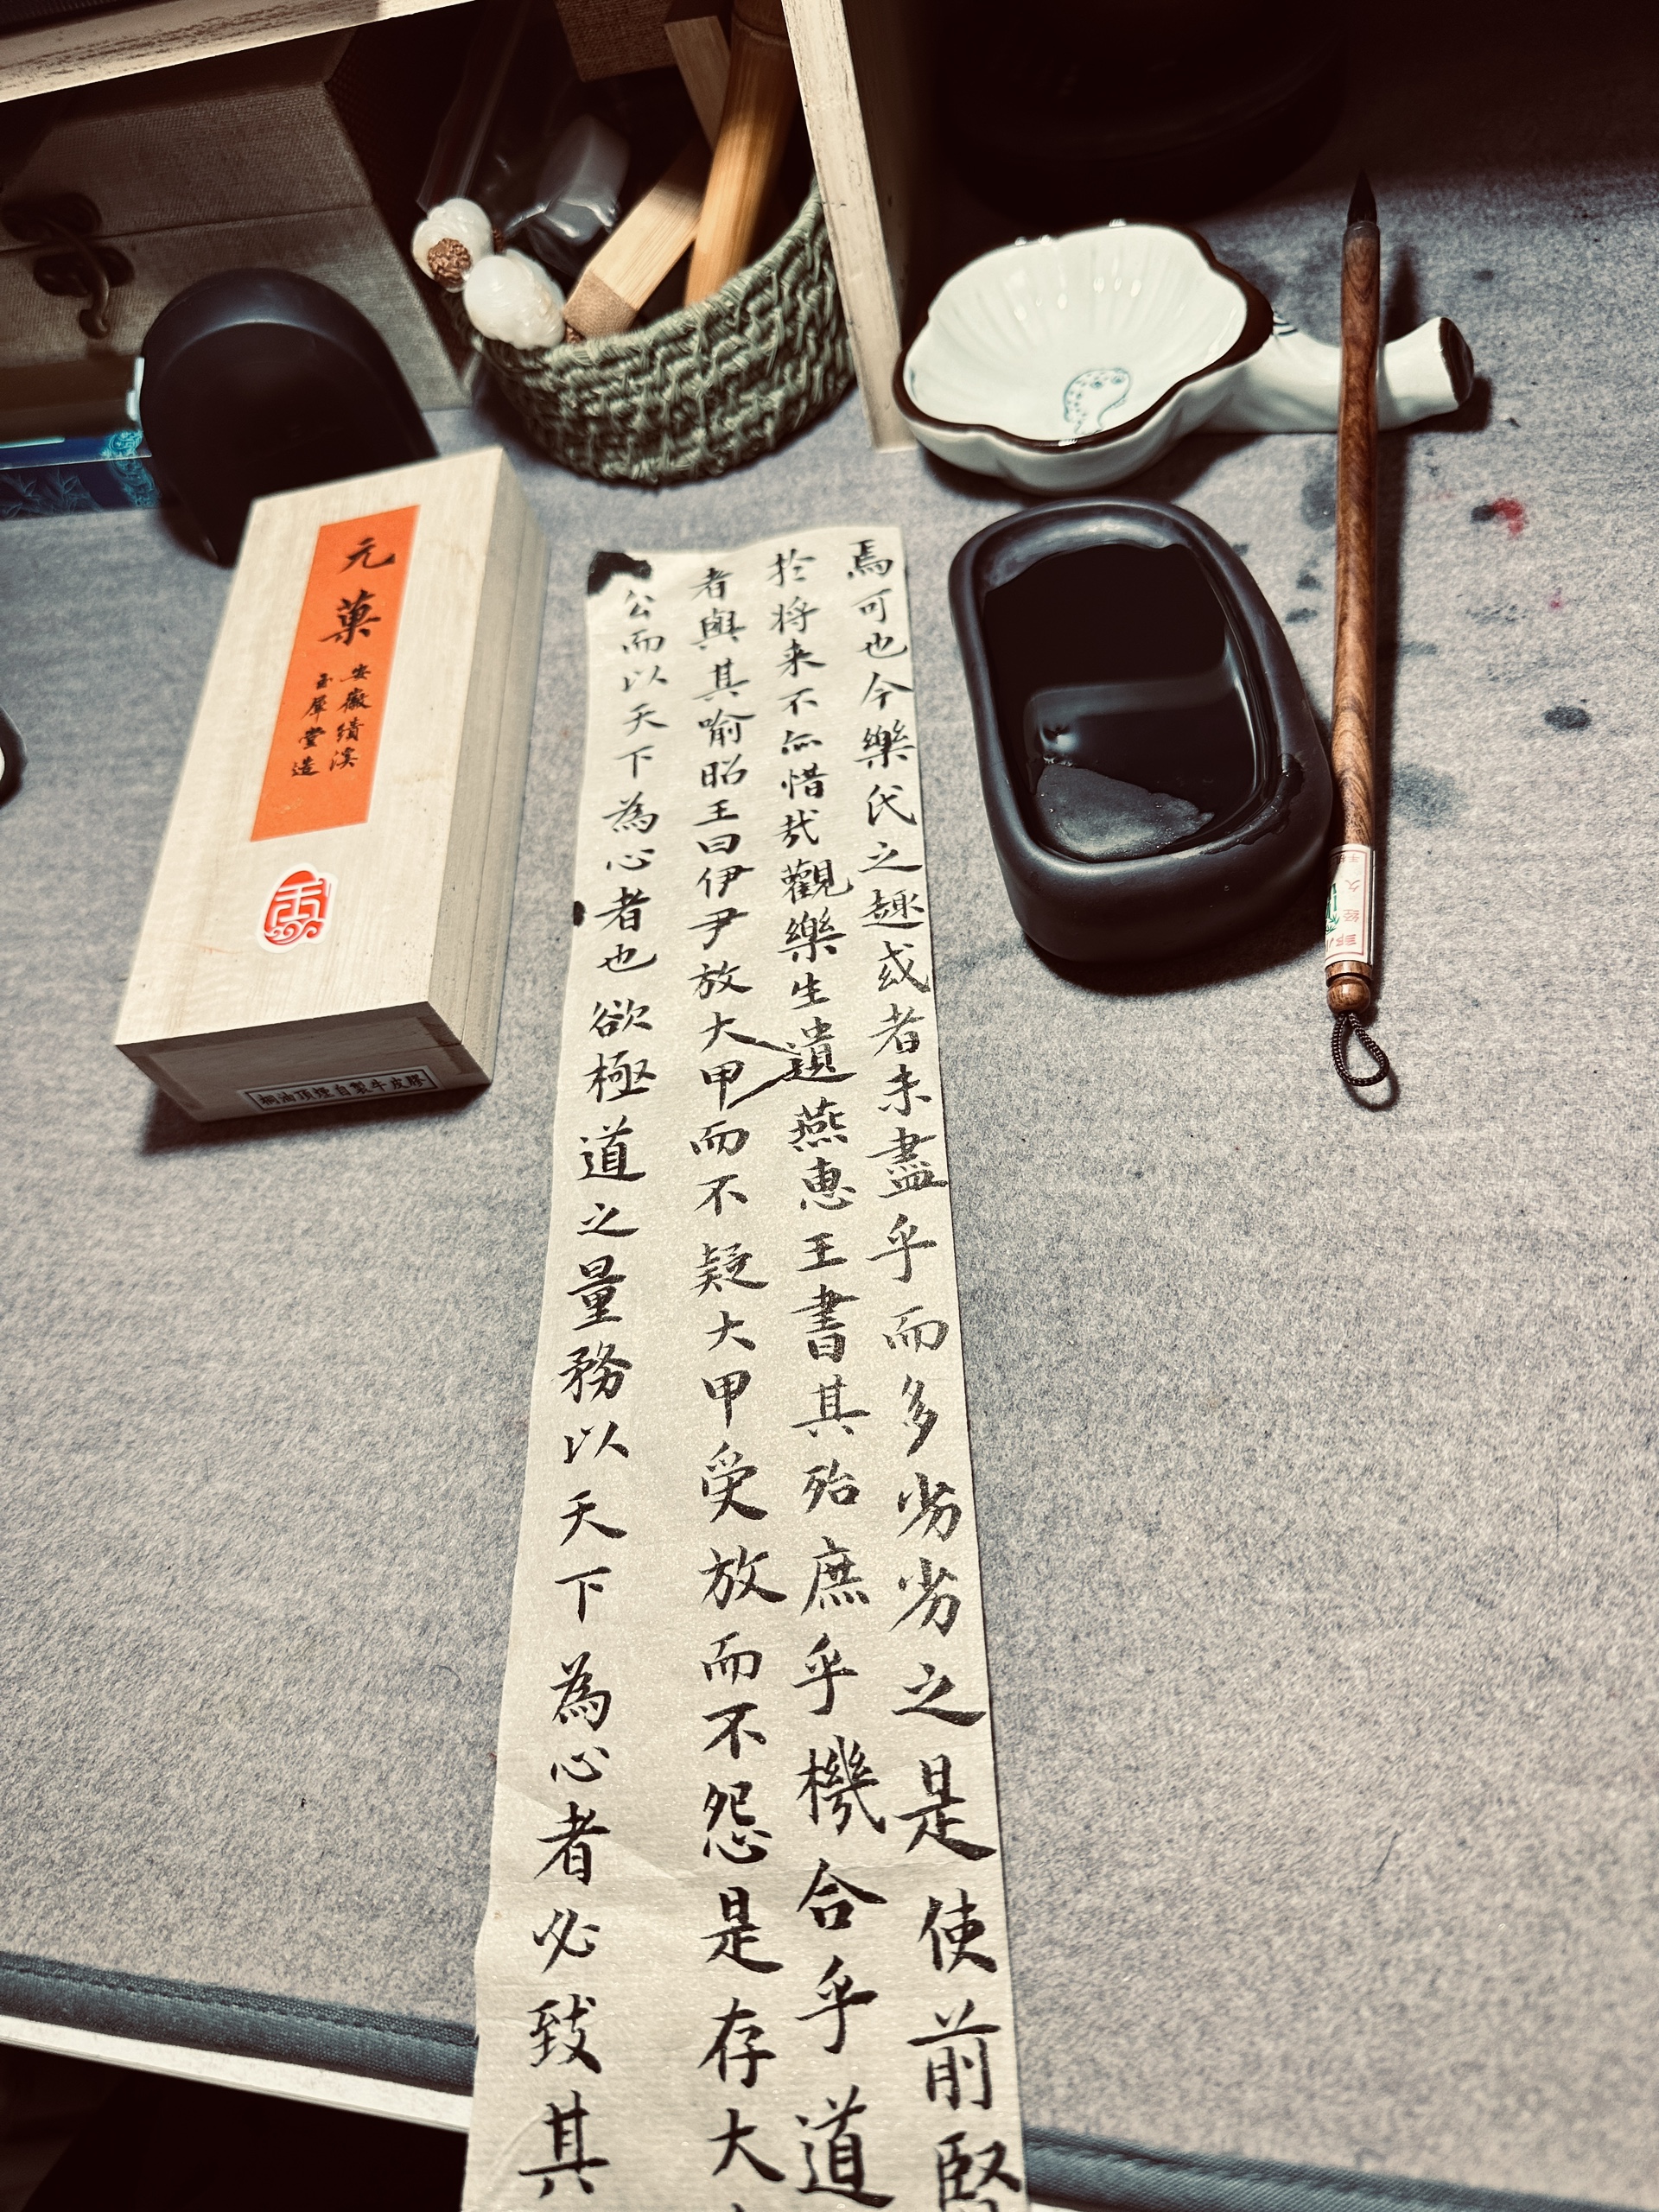 焉可也今樂氏之趣或者未盡乎而多劣劣之是使前賢
於將来不亦惜哉觀樂生遺燕惠王書其殆庶乎機合乎道
者與其喻昭王曰伊尹放大甲而不疑大甲受放而不怨是存大
公而以天下為心者也欲極道之量務以天下為心者必致其
元菓
安徽績溪
玉犀堂造
桐油頂煙自製牛皮膠